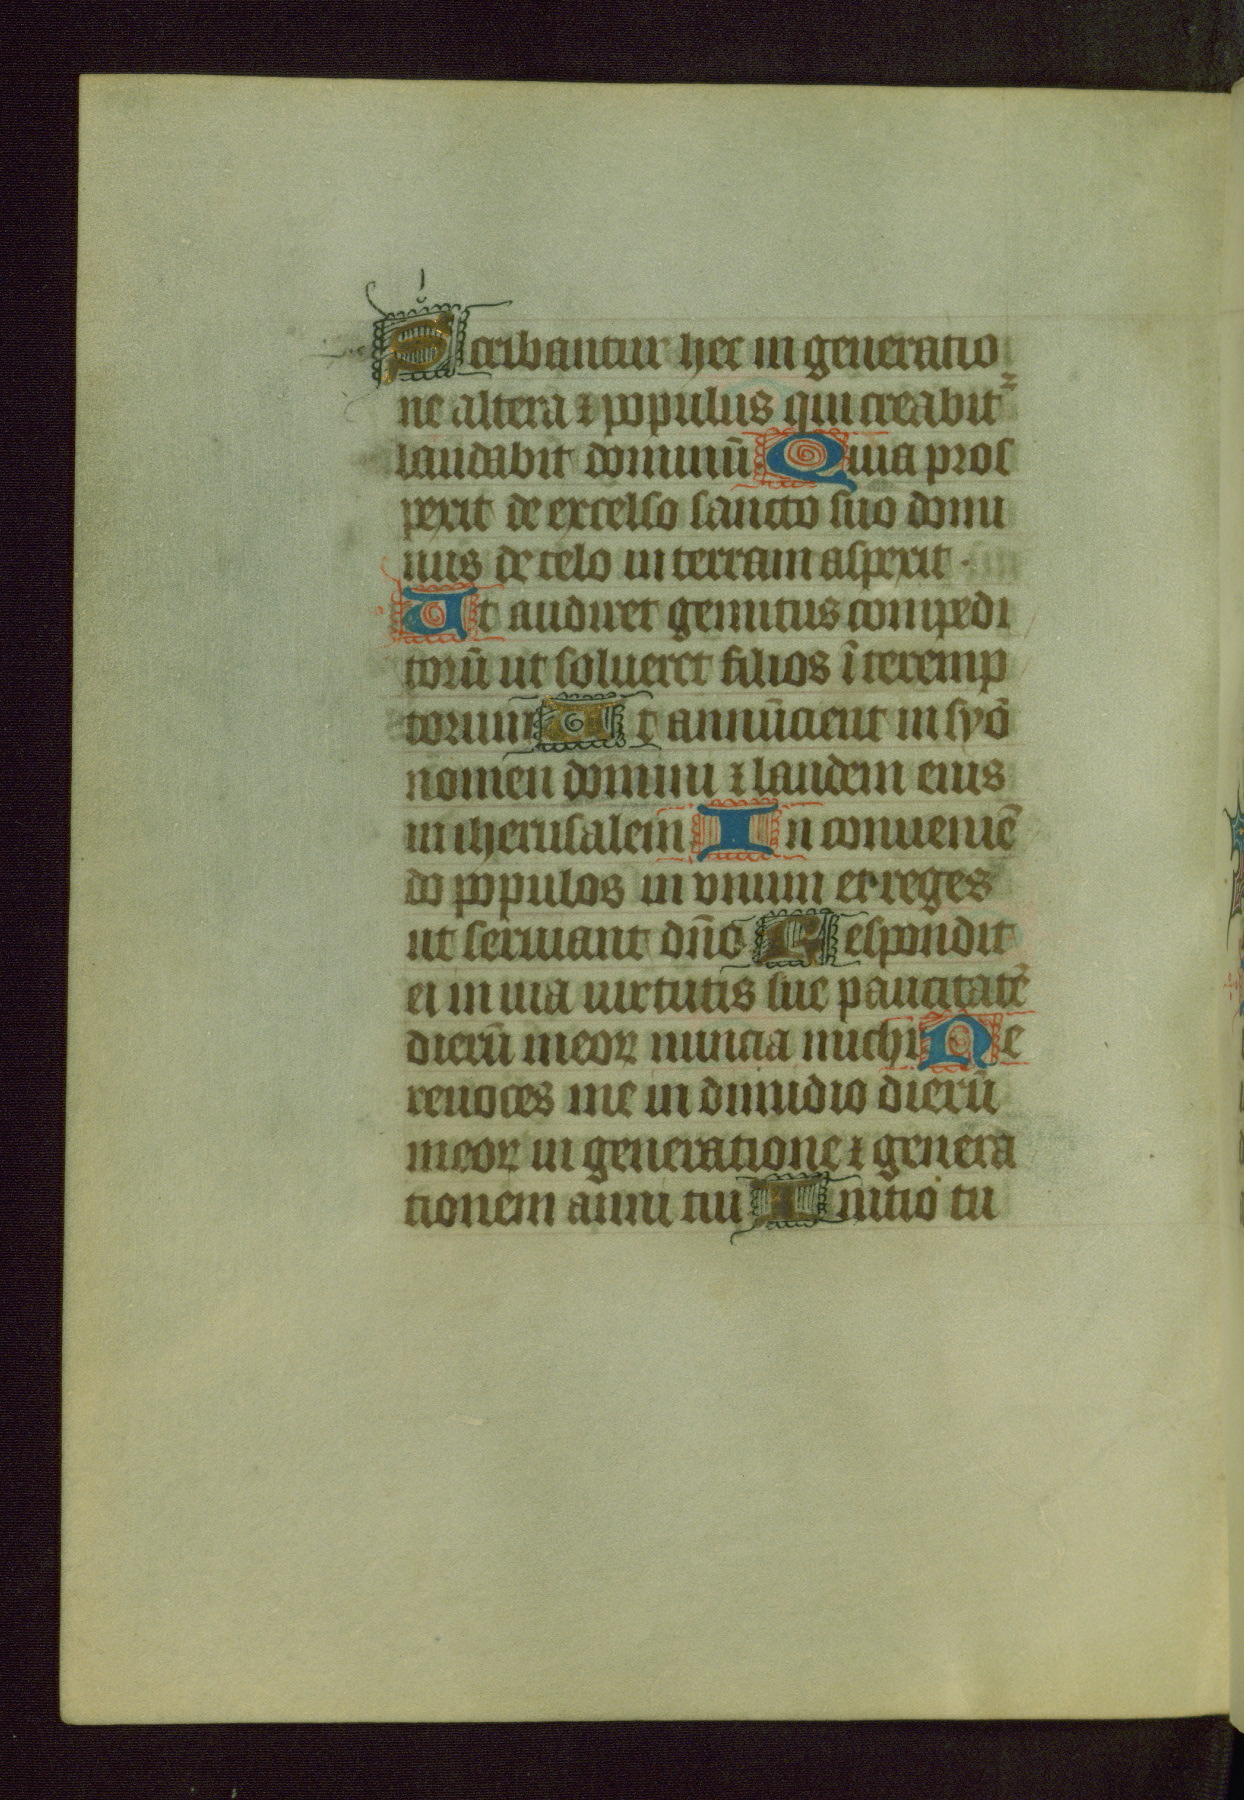 Scribantur hec in generatio
ne altera ⁊ populus qui creabit᷑
laudabit dominū Quia pros
pexit de excelso sancto suo domi
nus de celo in terram aspexit ·
Ut audiret gemitus compedi
torū ut solueret filios īteremp
torum Ut annūcient in syō
nomen domini ⁊ laudem eius
in iherusalem In conueniē
do populos in vnum et reges
ut seruiant dn̄o Respondit
ei in uia uirtutis sue paucitatē
dierū meoꝝ nuncia michi Ne
reuoces me in dimidio dierū
meoꝝ in generatione ⁊ genera
tionem anni tui Initio tu